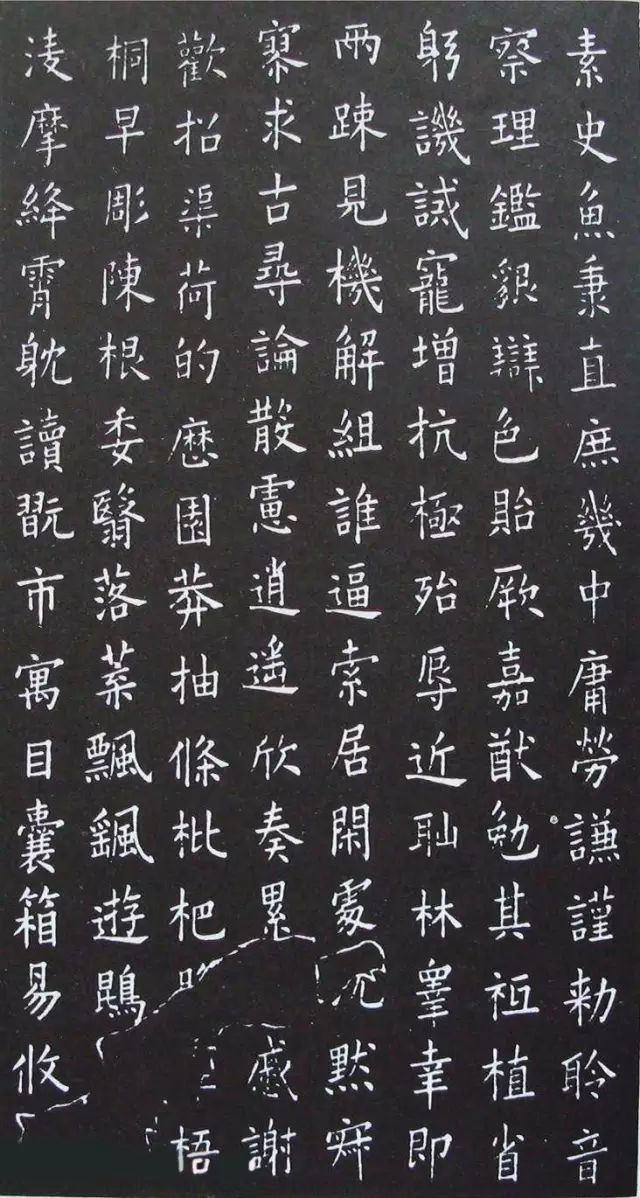 素史魚秉直庶幾中庸勞謙謹勅聆音
察理鑑貌辯色貽厥嘉猷勉其祗植省
躬譏誡寵增抗極殆辱近耻林睪幸即
兩踈見機解組誰逼索居閑處沉默寂
寥求古尋論散慮逍遙欣奏累慼謝
歡招渠荷的歷園莽抽條枇杷梧
桐早彫陳根委翳落葉飄颻遊鵾
淩摩絳霄耽讀翫市寓目囊箱易攸